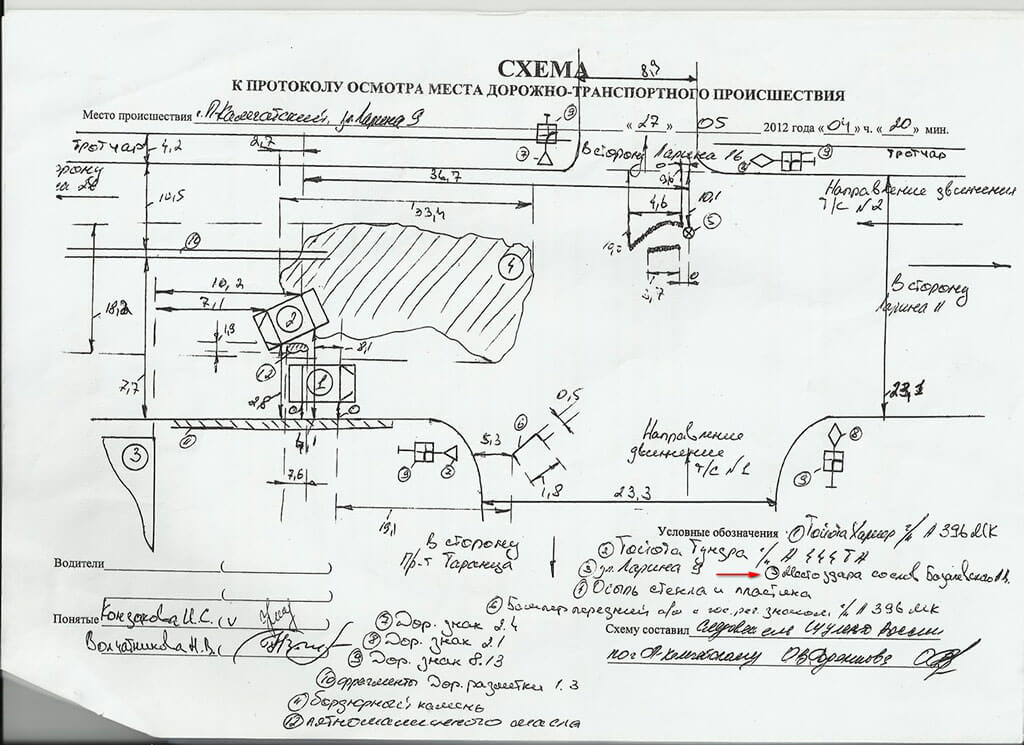 СХЕМА
К ПРОТОКОЛУ ОСМОТРА МЕСТА ДОРОЖНО-ТРАНСПОРТНОГО ПРОИСШЕСТВИЯ
Место происшествия г. П-Камчатский, ул. Ларина 9 « 27 » 05 2012 года « 04 » ч. « 20 » мин.
8,9
тротуар
4,2
2,7
7
9
В сторону Ларина 16
9
тротуар
36,7
10,5
33,4
4,6
10,1
5
Направление движения
Т/С №2
10
4
18,2
10,2
7,1
В сторону
Ларина 11
2
1,9
12
8,1
7,7
2,8
1
0
0
23,1
0,5
3
11
9
7
5,3
6
1,8
Направление
движения
Т/С №1
8
9
7,6
19,1
23,3
В сторону
Пр-т Таранца
Условные обозначения 1 Тойота Хариер г/н А 396 МК
2 Тойота Тундра г/н А 444 ТА
3 ул. Ларина 9
5 Место удара со слов
4 Осыпь стекла и пластика
6 Бампер передний а/м с гос. рег. знаком г/н А 396 МК
Водители ( )
( )
Понятые И.С. (
Волчатникова Н.В. (
Схему составил
7 Дор. знак 2.4
8 Дор. знак 2.1
9 Дор. знак 8.13
10 фрагменты Дор. разметки 1.3
11 бордюрный камень
12 пятно машинного масла